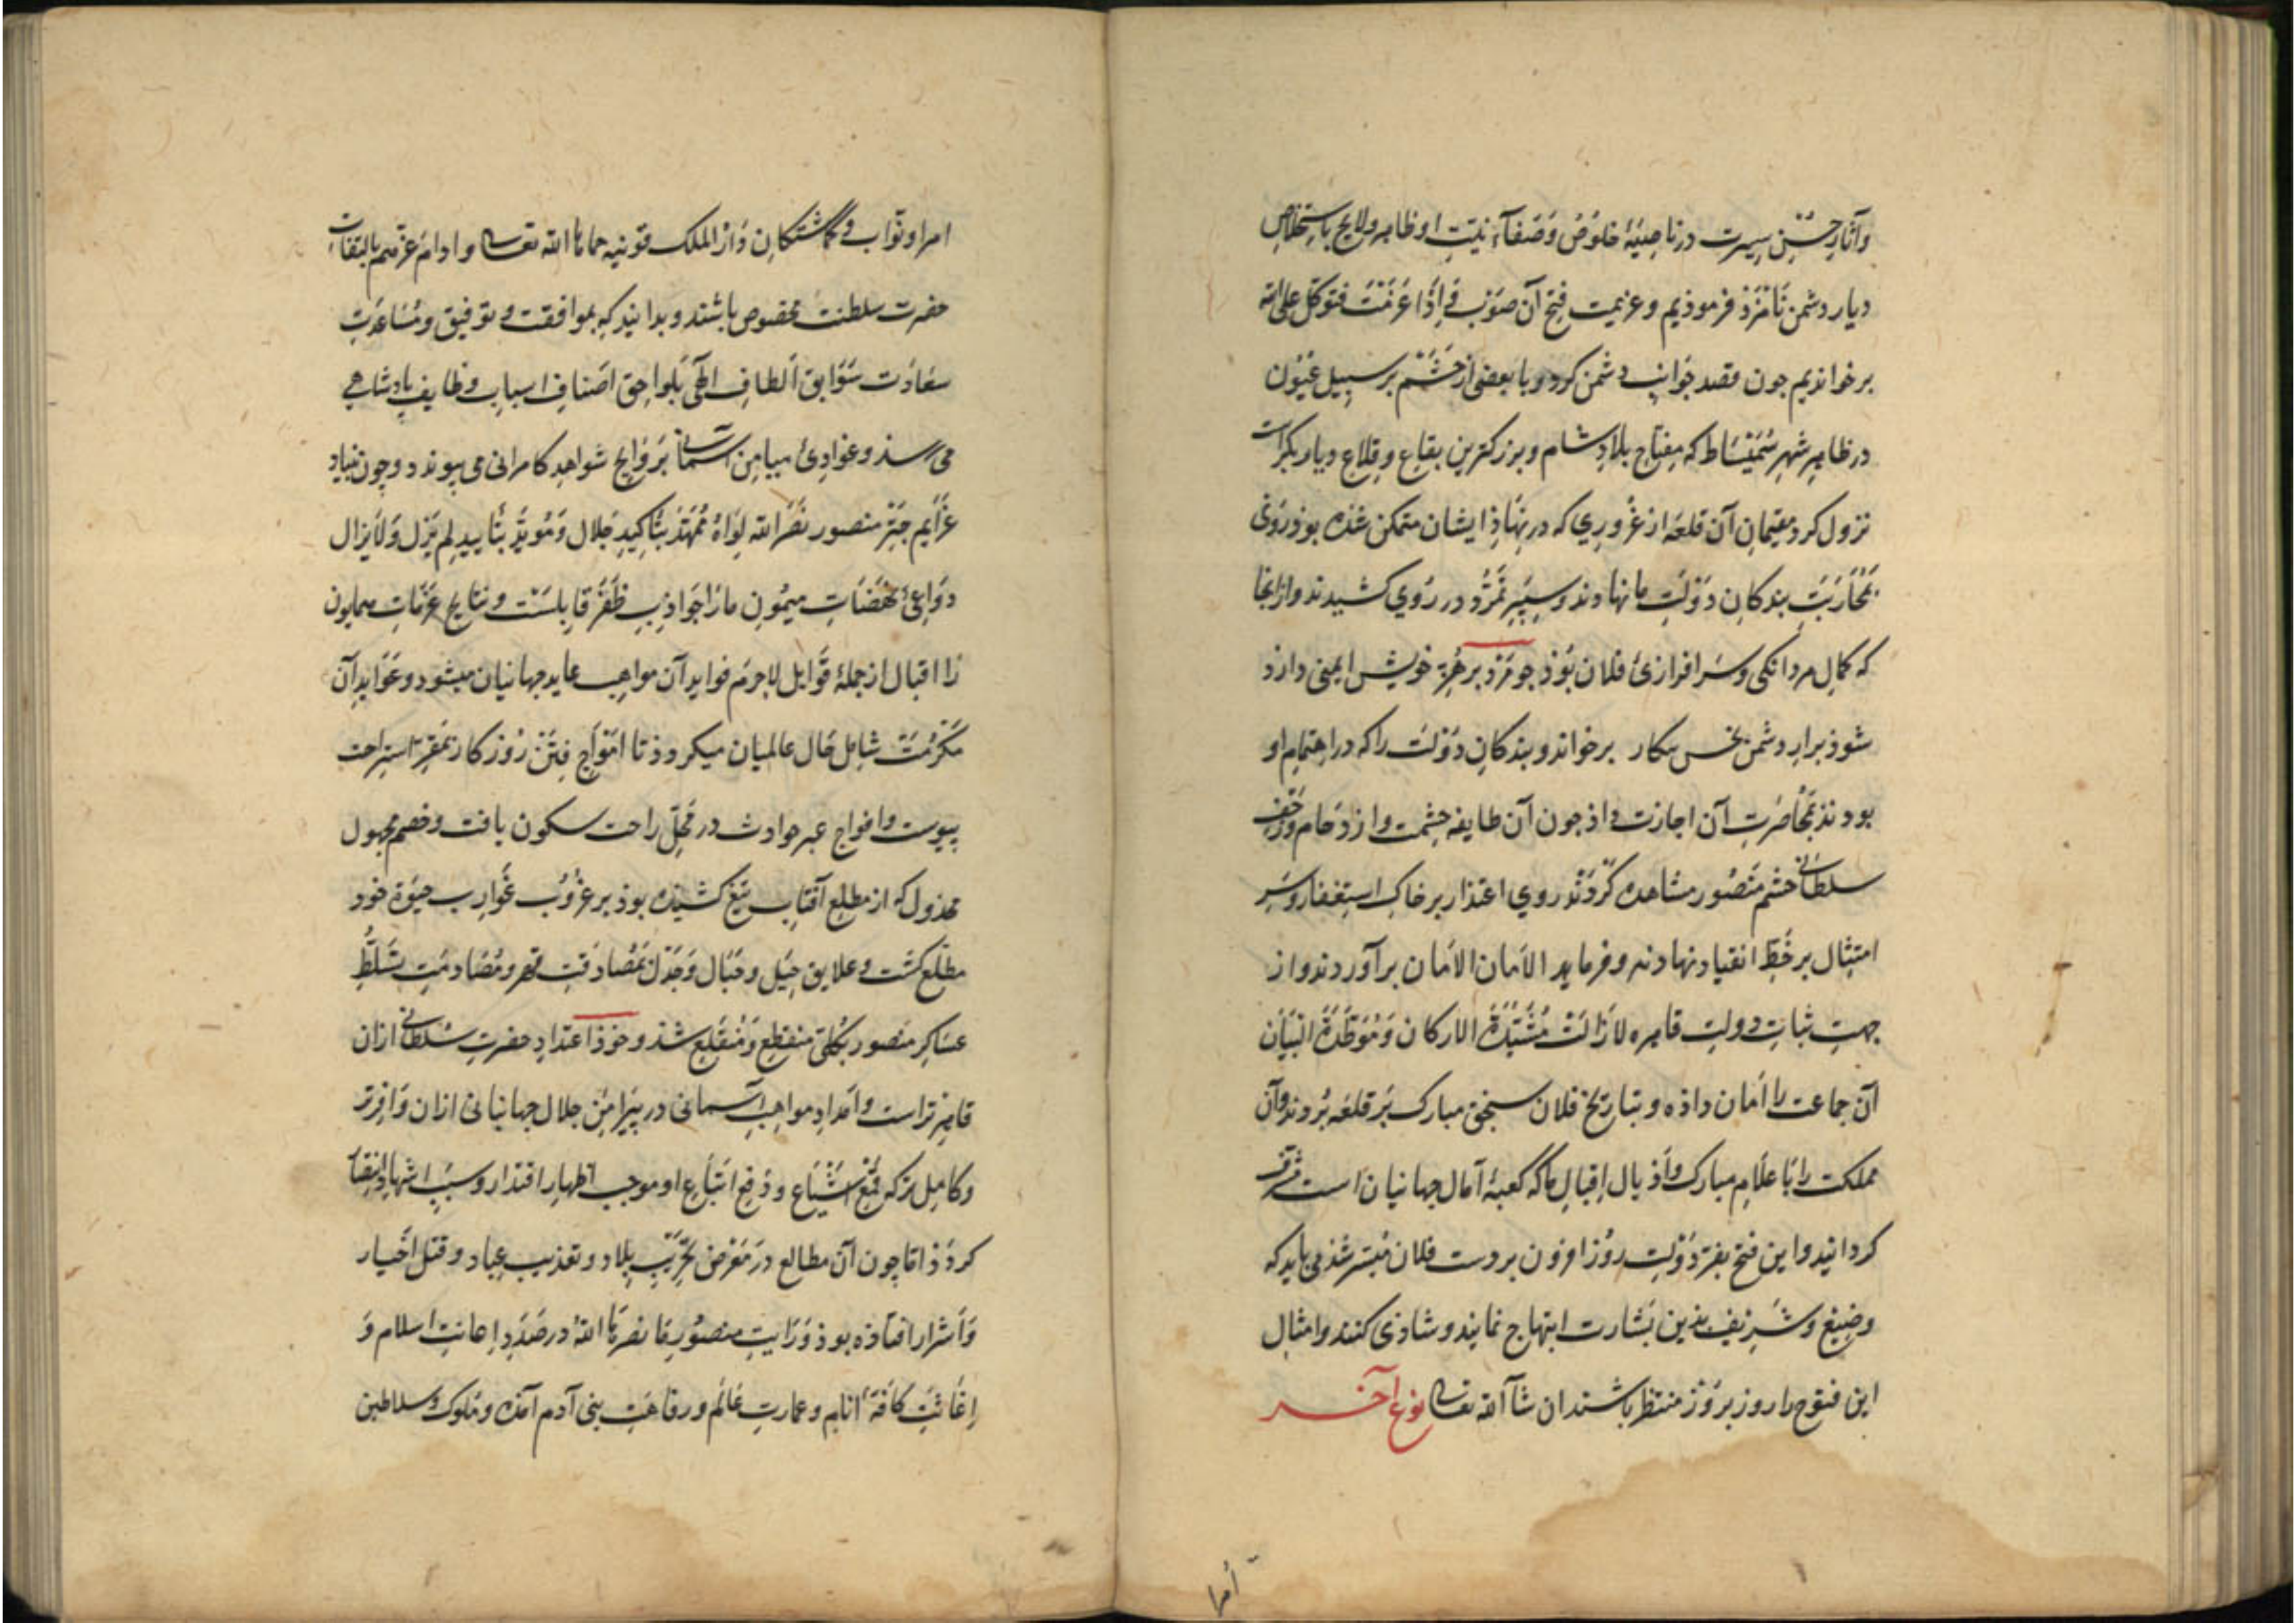 وآثارِ حُسْنِ سیرت در ناصیهٔ خلوص وَصَفآءِ نیّتِ او ظاهر ولایح باستخلاصِ
دیار دشمن نامْزَذ فرموذیم وعزیمت فتح آن صَوْب فَاِذَا عَزَمْتَ فتوکل علی الله
برخواندیم جون قصد جوانب دشمن کرد وبا بعضی از حَشَم بر سبیل
در ظاهرِ شهرِ سُمَیْسَاط که مفتاح بلادِ شام وبزرکترین بقاع وقلاعِ دیاربکر است
نزول کرد مقیمانِ آن قلعه از غُروری که در نهاذِ ایشان متمکن شذه بوذ روی
بمُحَارَبَتِ بندکانِ دَوْلَتِ ما نهادند وسپرِ تمَرُّد در رُوی کشیدند واز انجا
که کمالِ مردانکی وسَرافرازیٔ فلان بوَذ جو مَرْد بر هُنرِ خویش ایمنی دارذ
شوذ برابر دشمن بخس بیکار برخواند وبندکانِ دَوْلت را که در اهتمامِ او
بودند بمُحاصَرتِ آن اجازت داذ جون آن طایفه حشمت وازدحام
سلطانی حشم مَنْصُور مشاهده کَرْدَنْد روی اعتذار بر خاکِ استغفار وسَرِ
امتثال بر خَطِّ انقیاد نهادند وفریاد الاَمان الاَمان برآوردند واز
جهتِ ثباتِ دولت قاهره لازالَتْ مُشَیَّدَةَ الارکان وَمُوَطَّدَةَ البُنیان
آن جماعت را اَمان داذه وبتاریخ فلان سنجقِ مبارک بَر قلعه بُردند وآن
مملکت را با علامِ مبارک واَذیالِ اِقبالِ ما که کعبهٔ آمال جهانیان است مشرّف
کردانیدند واین فتح بفرّ دَوْلتِ روُز افزون بر دست فلان مُیَسّر شذ می باید که
وضِیع وشَرِیف بذین بَشارت ابتهاج نمایند وشاذی کنند وامثالِ
این فتوح را روز بروُزْ منتظر باشند ان شآ الله تعالی نوع آخر
امرا
امرا ونوّاب وکماشتکانِ دَارُ الملک قونیه حماها الله تعالی وادام عزّهم بالتفاتِ
حضرت سلطنت مخصوص باشند وبدانند که بموافقت وتوفیق ومُسَاعَدَتِ
سعادَت سَوَابق اَلطافِ الٰهی بلواحق اَصنافِ اسبابِ وظایف پادشاهی
می رسذ وغوادیٔ میامنِ آسمانی بَرَوایحِ شواهدِ کامرانی می پیوندد وچون بنیاد
عزَایمِ چَتْرِ منصور نَصَرَ الله لِوَاهُ مُمَهَّد بتاکیدِ جَلال وَمُویَّد بتاییدِ لم یَزل وَلایزال
دوَاعیٔ نهضَاتِ میمُونِ ما رَا جَوَاذِبِ ظَفَر قابلست ونتایج عَزَماتِ همایون
را اقبال از جملهٔ قوابل لاجرَم فوایدِ آن مواهب عاید جهانیان میشود وعَوایدِ آن
مَکْرُمَتْ شاملِ حَالِ عالمیان میکردد تا امْوَاجِ فِتَنِ رُوزکار بمقرِّ استراحت
پیوست وافواج عبرِ حوادث در مَحَلِّ راحت سکون یافت وخصمِ مجهول
مخذول که از مطلع آفتاب تیغ کشیده بوذ بر غُرُوب غَوارِب حیوة خود
مطّلع کشت وعلایق حِیَل وحِبَال وَجَدَل بمُصادفت قهر ومُصادمتِ تَسَلُّطِ
عساکرِ منصور بکُلّی منقطع وَمُنْقَلع شذ وخوذ اعتدادِ حضرتِ سُلطانی ازان
قاهر تراست واَمدادِ مواهبِ آسمانی در پیرامنِ جلال جهانبانی ازان وَافِرتر
وکاملتر که قمعِ اَشْیَاع ودَفعِ اَتْبَاعِ او موجب اظهارِ اقتدار وسبَبِ
کرْدَذ امّا چون آن مطالع در مَعْرَضِ تَخْرِیبِ بلاد وتعذیبِ عِباد وقتل اَخْیار
وَاَشْرار افتاذه بوذ وَرَایتِ منصُورِ ما نصرها اللهُ در صَدَدِ اِعانتِ اسلام وَ
اِغاثتِ کافّهٔ اَنام وعمارتِ عَالَم ورفاهَتِ بنی آدم آمَده ومُلوک وسلاطین